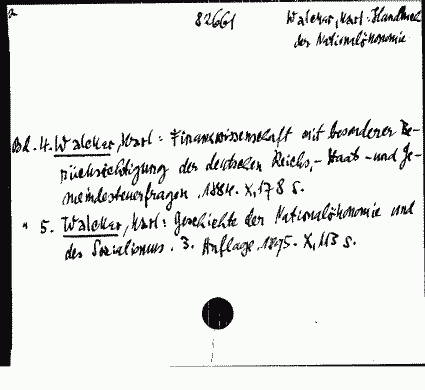 82661 Walcker, Karl: Handbuch
der Nationalökonomie
Bd. 4. Walcker, Karl: Finanzwissenschaft mit besonderer Be-
rücksichtigung der deutschen Reichs,- Staats- und Ge-
meindesteuerfragen. 1884. X, 178 S.
" 5. Walcker, Karl: Geschichte der Nationalökonomie und
des Sozialismus. 3. Auflage. 1895. X, 113 S.